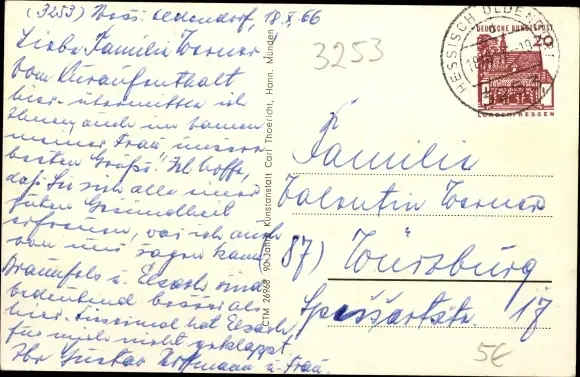 (3253) Hess. Oldendorf, 18.X.66
Liebe Familie Werner
Vom Kuraufenthalt
hier übermitteln ich
Ihnen, auch im Namen
meiner Frau unsere
besten Grüße. Ich hoffe,
daß Sie sich alle einer
guten Gesundheit
erfreuen, was ich auch
von uns sagen kann.
Braunfels u. Elzach sind
bedeutend besser als
hier. Diesmal hat Elzach
für mich nicht geklappt.
Ihr Gustav Hoffmann u. Frau.
CTM 26968 90 Jahre Kunstanstalt Carl Thoericht, Hann. Münden
3253
HESSISCH OLDENDORF
DEUTSCHE BUNDESPOST
20
LORSCH/HESSEN
Familie
Valentin Werner
87) Würzburg
Spessartstr. 17
5€